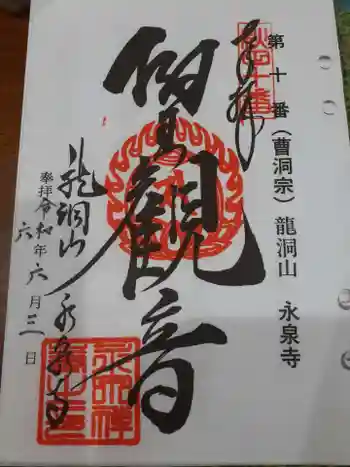 第十番(曹洞宗) 龍洞山 永泉寺
奉拝
秋田十番
聖観音
龍洞山 永泉寺
奉拝 令和六年六月三日